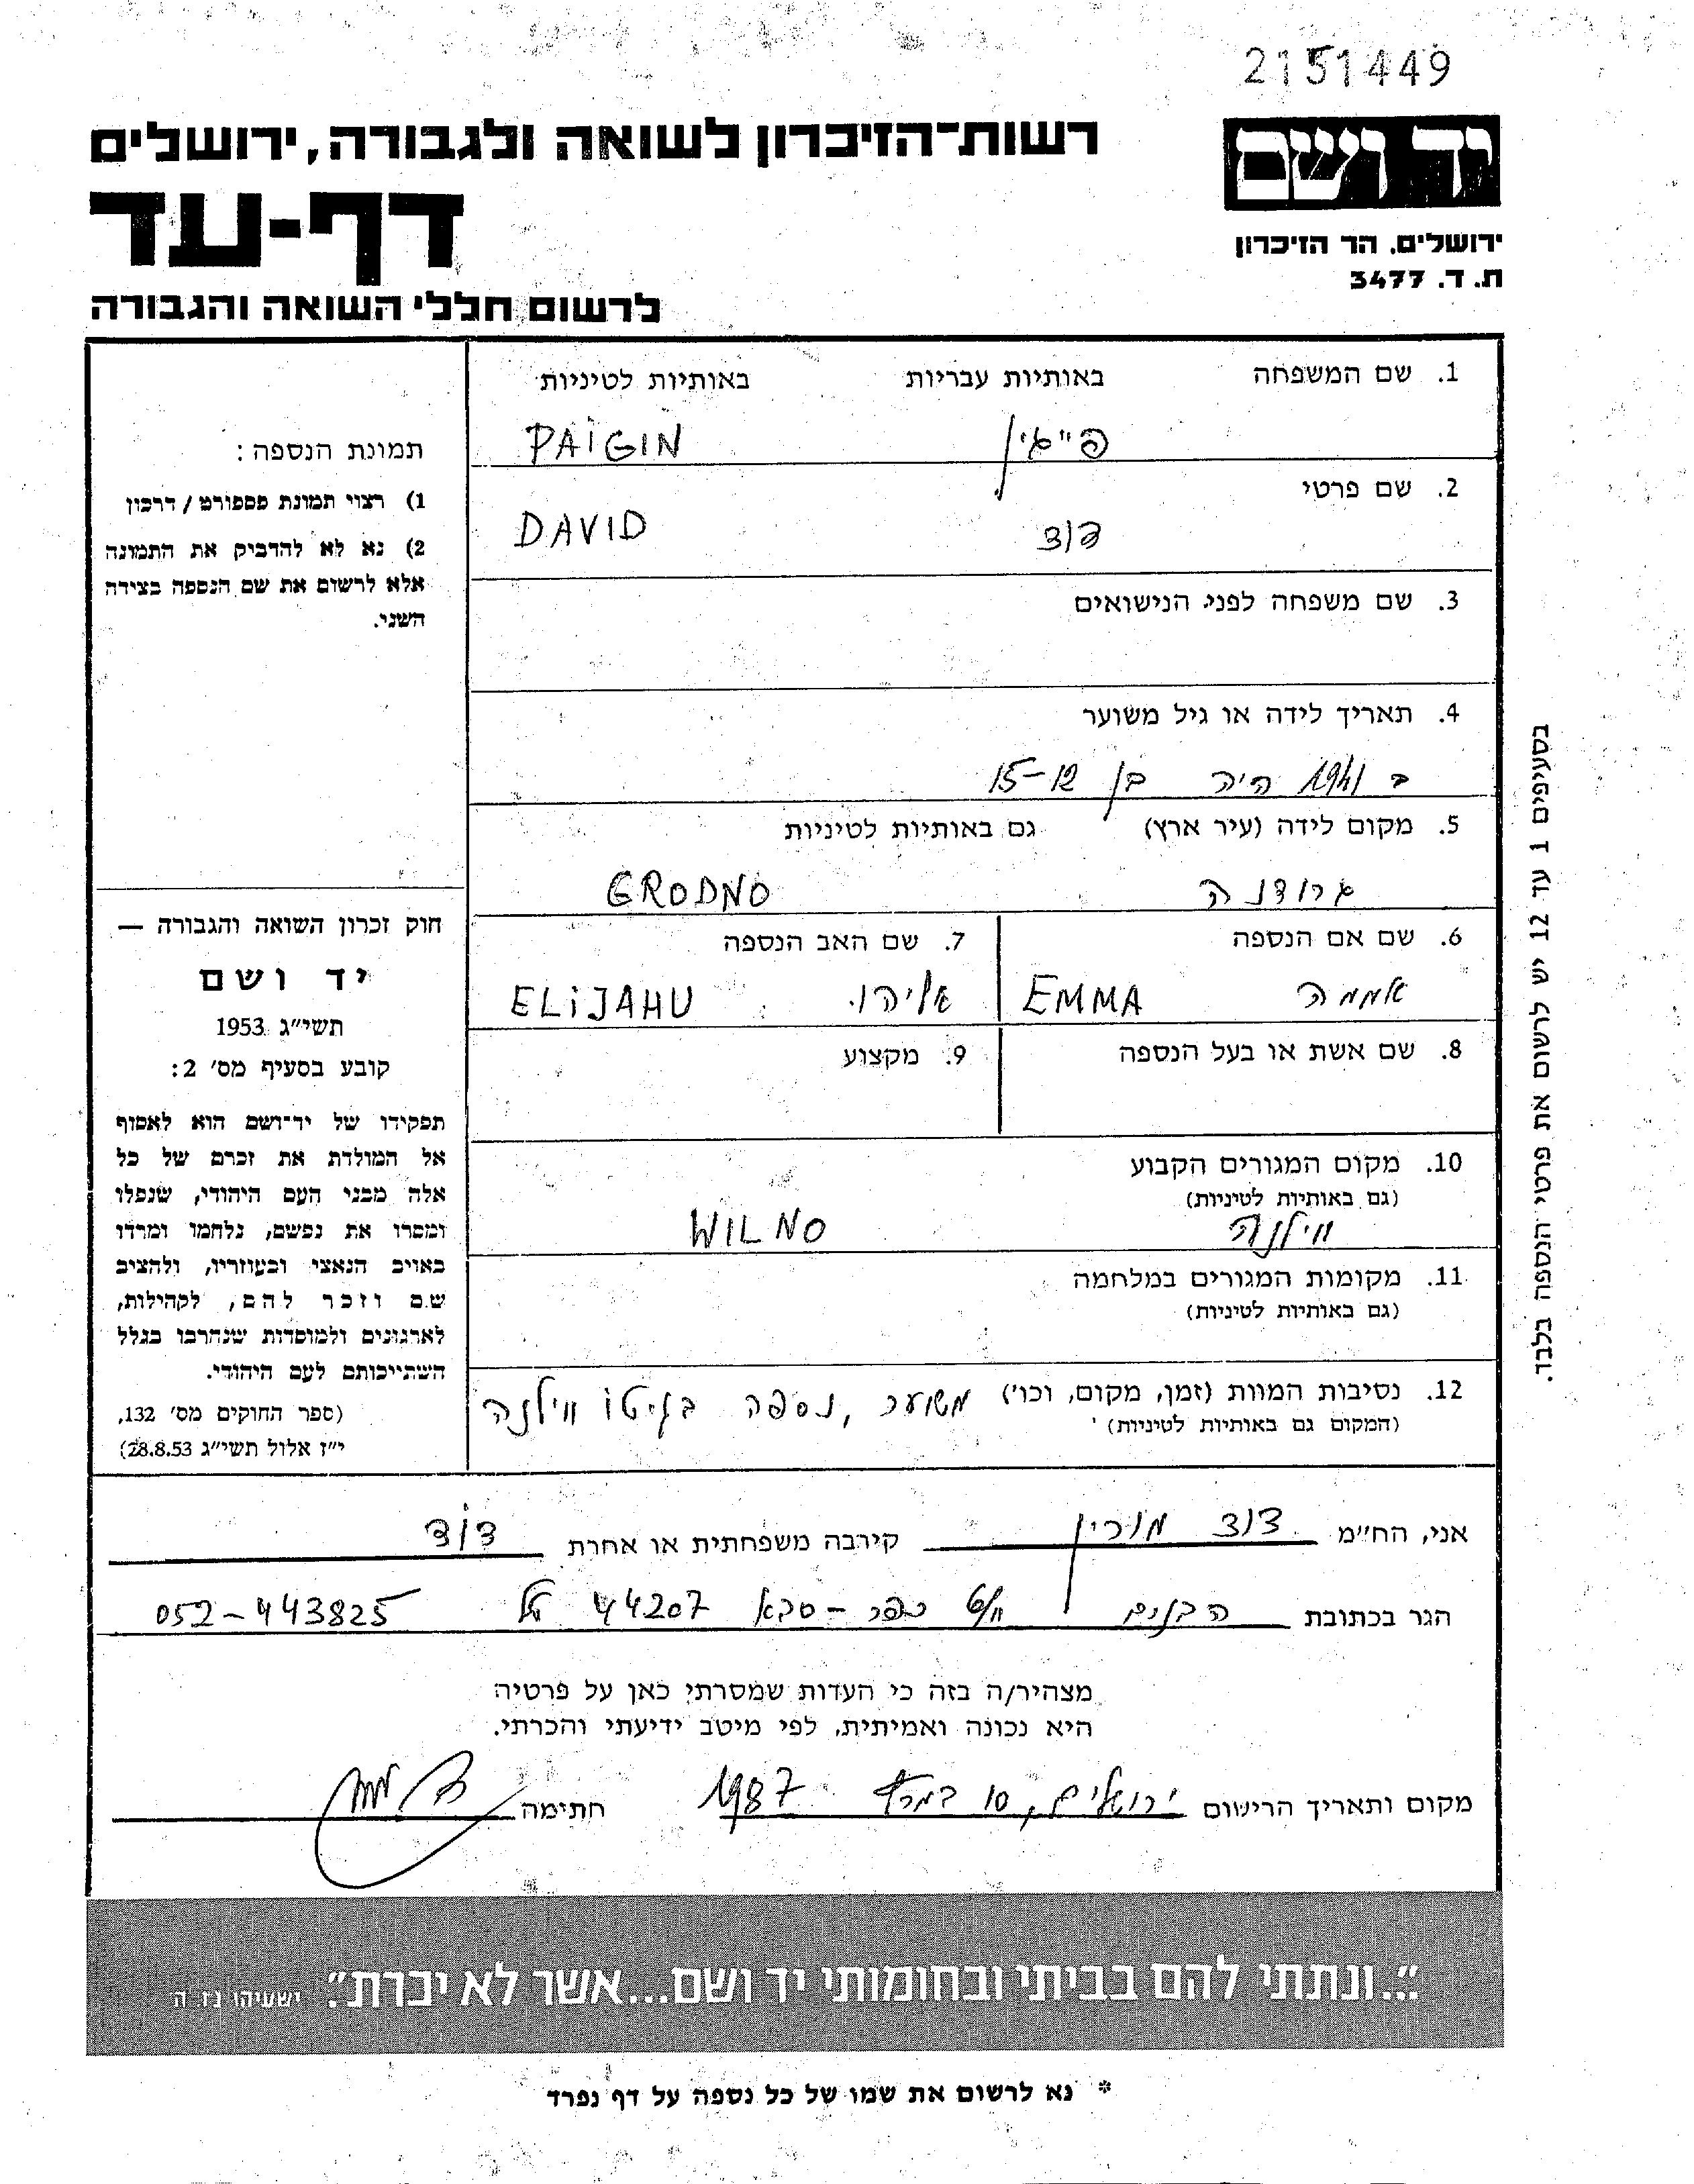 2151449
יד ושם
רשות־הזיכרון לשואה ולגבורה, ירושלים
דף-עד
ירושלים. הר הזיכרון
ת. ד. 3477
לרשום חללי השואה והגבורה
1. שם המשפחה באותיות עבריות באותיות לטיניות
פייגין PAIGIN
2. שם פרטי
דוד DAVID
3. שם משפחה לפני הנישואים
4. תאריך לידה או גיל משוער
ב 1941 היה בן 15-12
5. מקום לידה (עיר ארץ) גם באותיות לטיניות
גרודנה GRODNO
6. שם אם הנספה
אממה EMMA
7. שם האב הנספה
אליהו ELIJAHU
8. שם אשת או בעל הנספה
9. מקצוע
10. מקום המגורים הקבוע
(גם באותיות לטיניות)
ווילנה WILNO
11. מקומות המגורים במלחמה
(גם באותיות לטיניות)
12. נסיבות המוות (זמן, מקום, וכו') משוער, נספה בגיטו ווילנה
(המקום גם באותיות לטיניות)
תמונת הנספה:
1) רצוי תמונת פספורט / דרכון
2) נא לא להדביק את התמונה
אלא לרשום את שם הנספה בצידה
השני.
חוק זכרון השואה והגבורה —
יד ושם
תשי"ג 1953
קובע בסעיף מס' 2:
תפקידו של יד־ושם הוא לאסוף
אל המולדת את זכרם של כל
אלה מבני העם היהודי, שנפלו
ומסרו את נפשם, נלחמו ומרדו
באויב הנאצי ובעוזריו, ולהציב
שם וזכר להם, לקהילות,
לארגונים ולמוסדות שנחרבו בגלל
השתייכותם לעם היהודי.
(ספר החוקים מס' 132,
י"ז אלול תשי"ג 28.8.53)
בסעיפים 1 עד 12 יש לרשום את פרטי הנספה בלבד.
אני, הח"מ דוד מורין קירבה משפחתית או אחרת דוד
הגר בכתובת הבנים כפר-סבא 44207 טל 052-443825
מצהיר/ה בזה כי העדות שמסרתי כאן על פרטיה
היא נכונה ואמיתית, לפי מיטב ידיעתי והכרתי.
מקום ותאריך הרישום ירושלים, 10 במרץ 1987 חתימה
"...ונתתי להם בביתי ובחומותי יד ושם...אשר לא יכרת". ישעיהו נו ה
* נא לרשום את שמו של כל נספה על דף נפרד